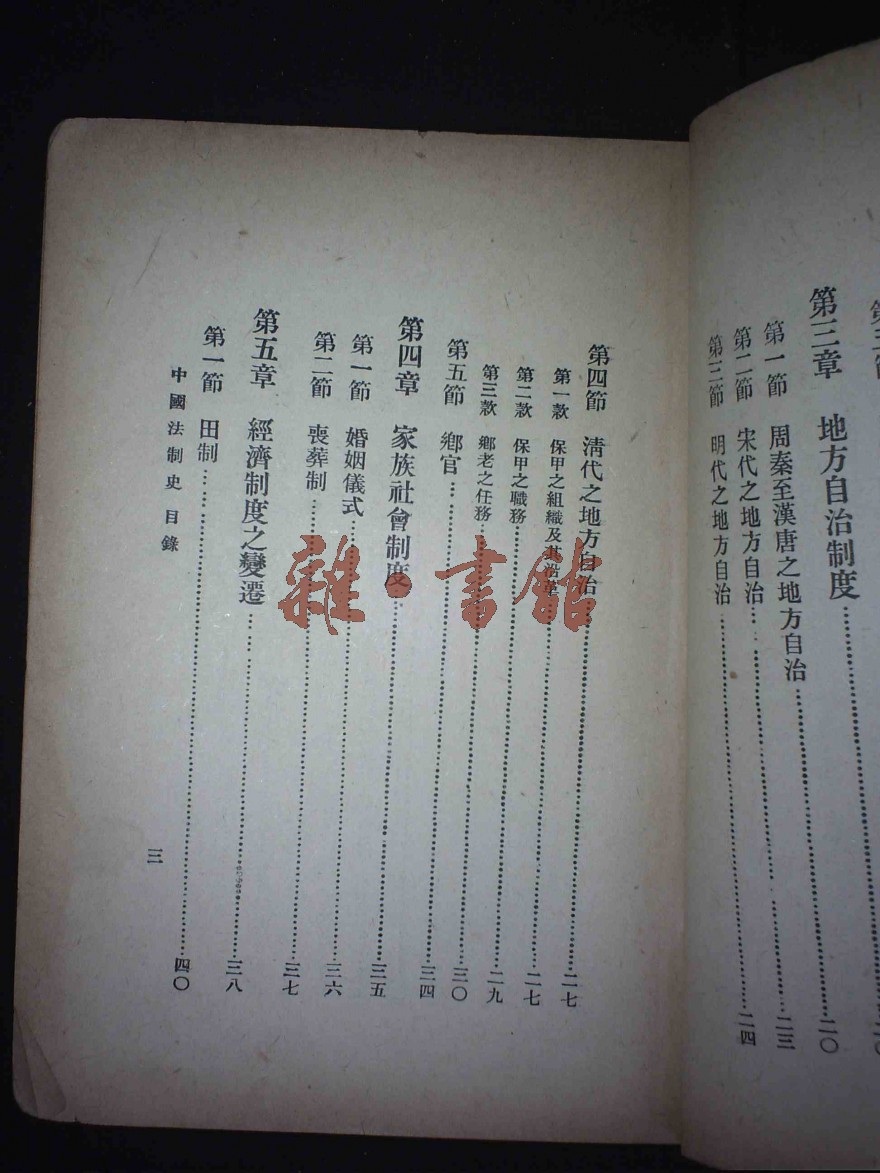 第三章　地方自治制度……二〇
第一節　周秦至漢唐之地方自治……二三
第二節　宋代之地方自治……二四
第三節　明代之地方自治……
第四節　清代之地方自治……二七
第一款　保甲之組織及其沿革……二七
第二款　保甲之職務……二九
第三款　鄉老之任務……三〇
第五節　鄉官……三四
第四章　家族社會制度……三五
第一節　婚姻儀式……三六
第二節　喪葬制……三七
第五章　經濟制度之變遷……三八
第一節　田制……四〇
中國法制史　目錄　三
雜·書館